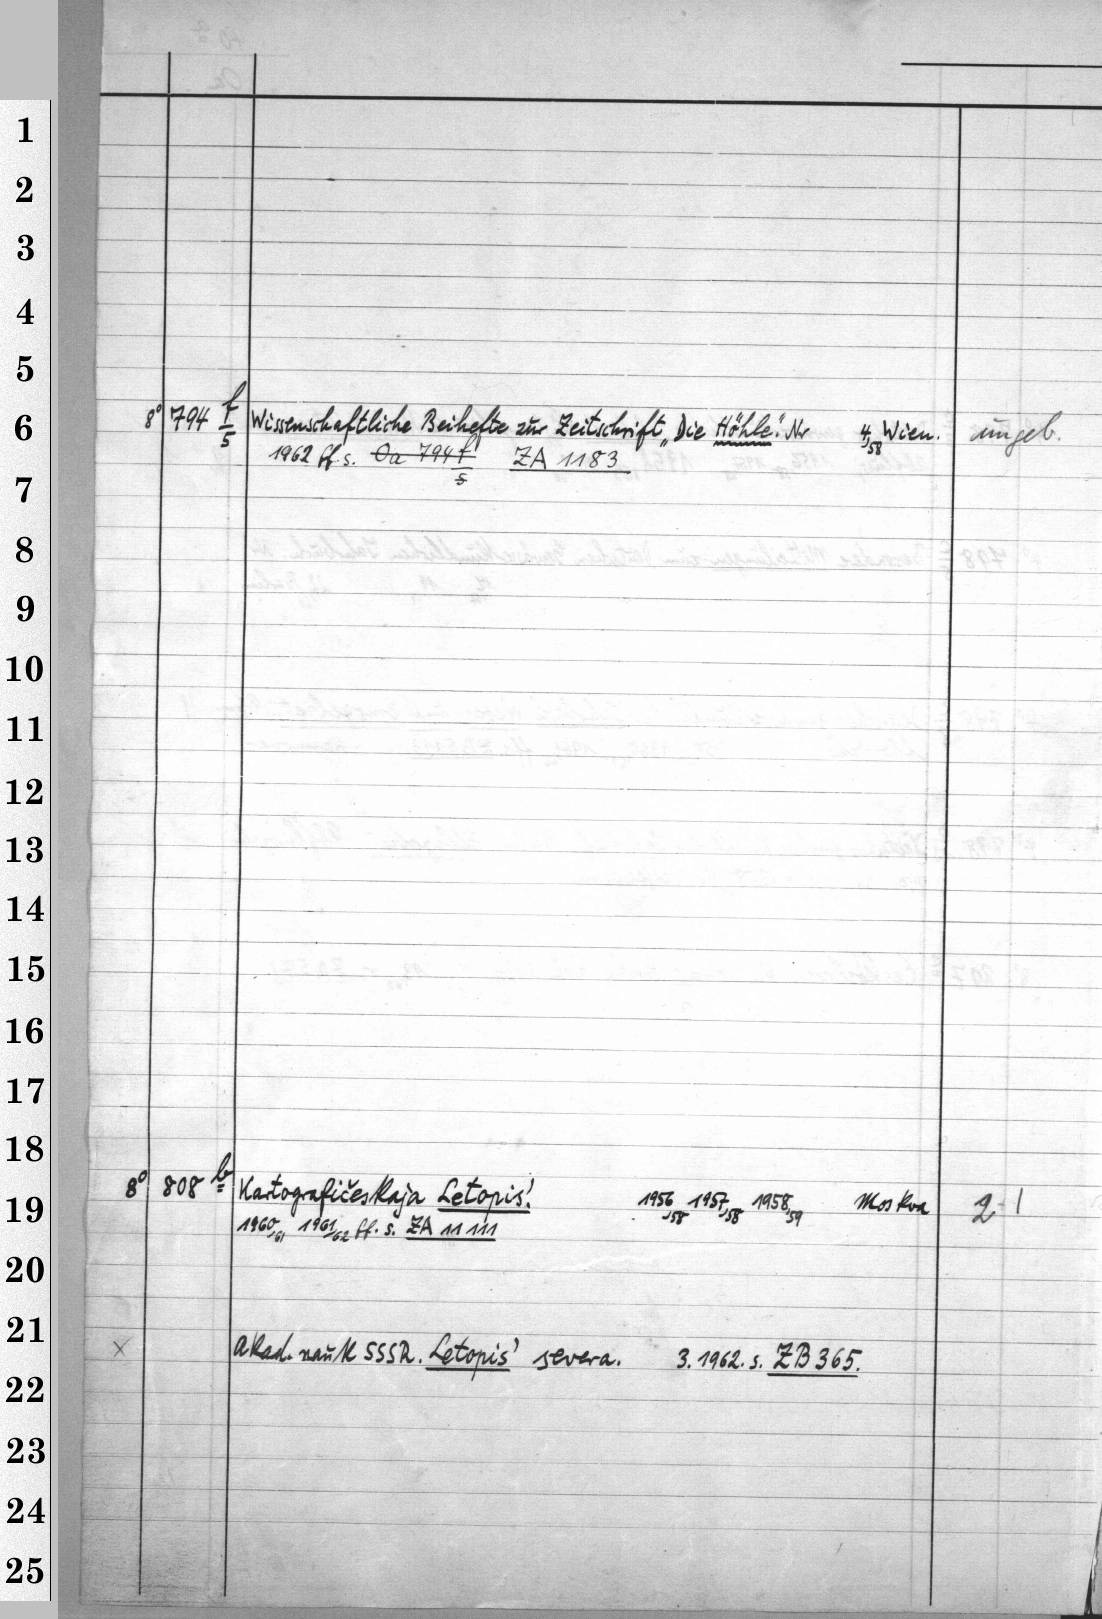 1
2
3
4
5
6
8° 794 f/5 Wissenschaftliche Beihefte zur Zeitschrift „Die Höhle". Nr 4/58 Wien. ungeb.
1962 ff. s. Oa 794 f/5 ZA 1183
7
8
9
10
11
12
13
14
15
16
17
18
19
8° 808 b Kartografičeskaja Letopis'. 1956/58 1957/58 1958/59 Moskva 2 1
1960/61 1961/62 ff. s. ZA 11 111
20
21
x Akad. nauk SSSR. Letopis' severa. 3. 1962. s. ZB 365.
22
23
24
25